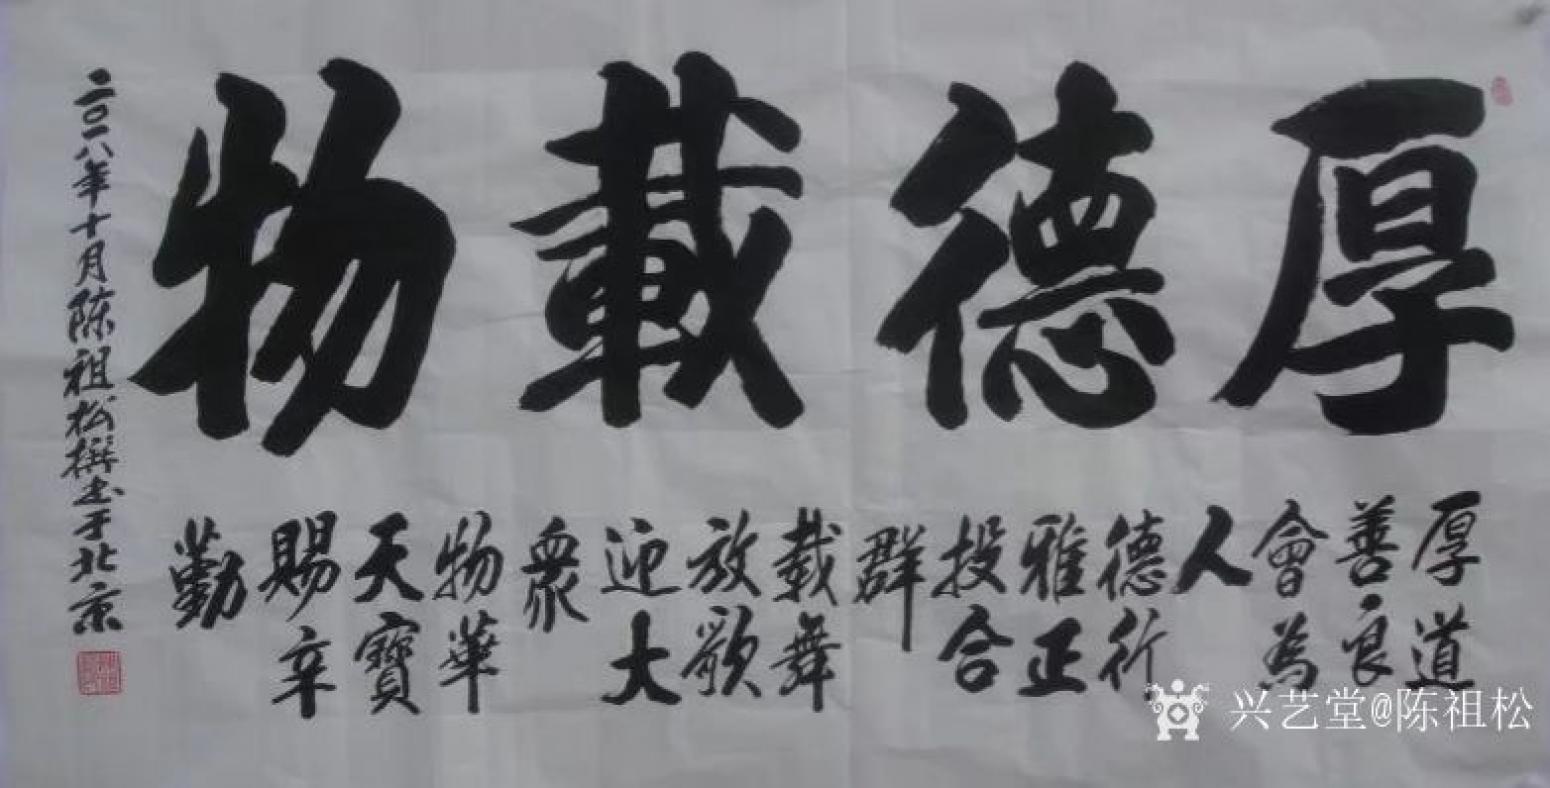 厚德載物
厚道
善良
會為
人
德行
雅正
投合
群
载舞
放歌
迎大
眾
物華
天寶
賜辛
勤
二〇一八年十月陈祖松撰书于北京
兴艺堂@陈祖松